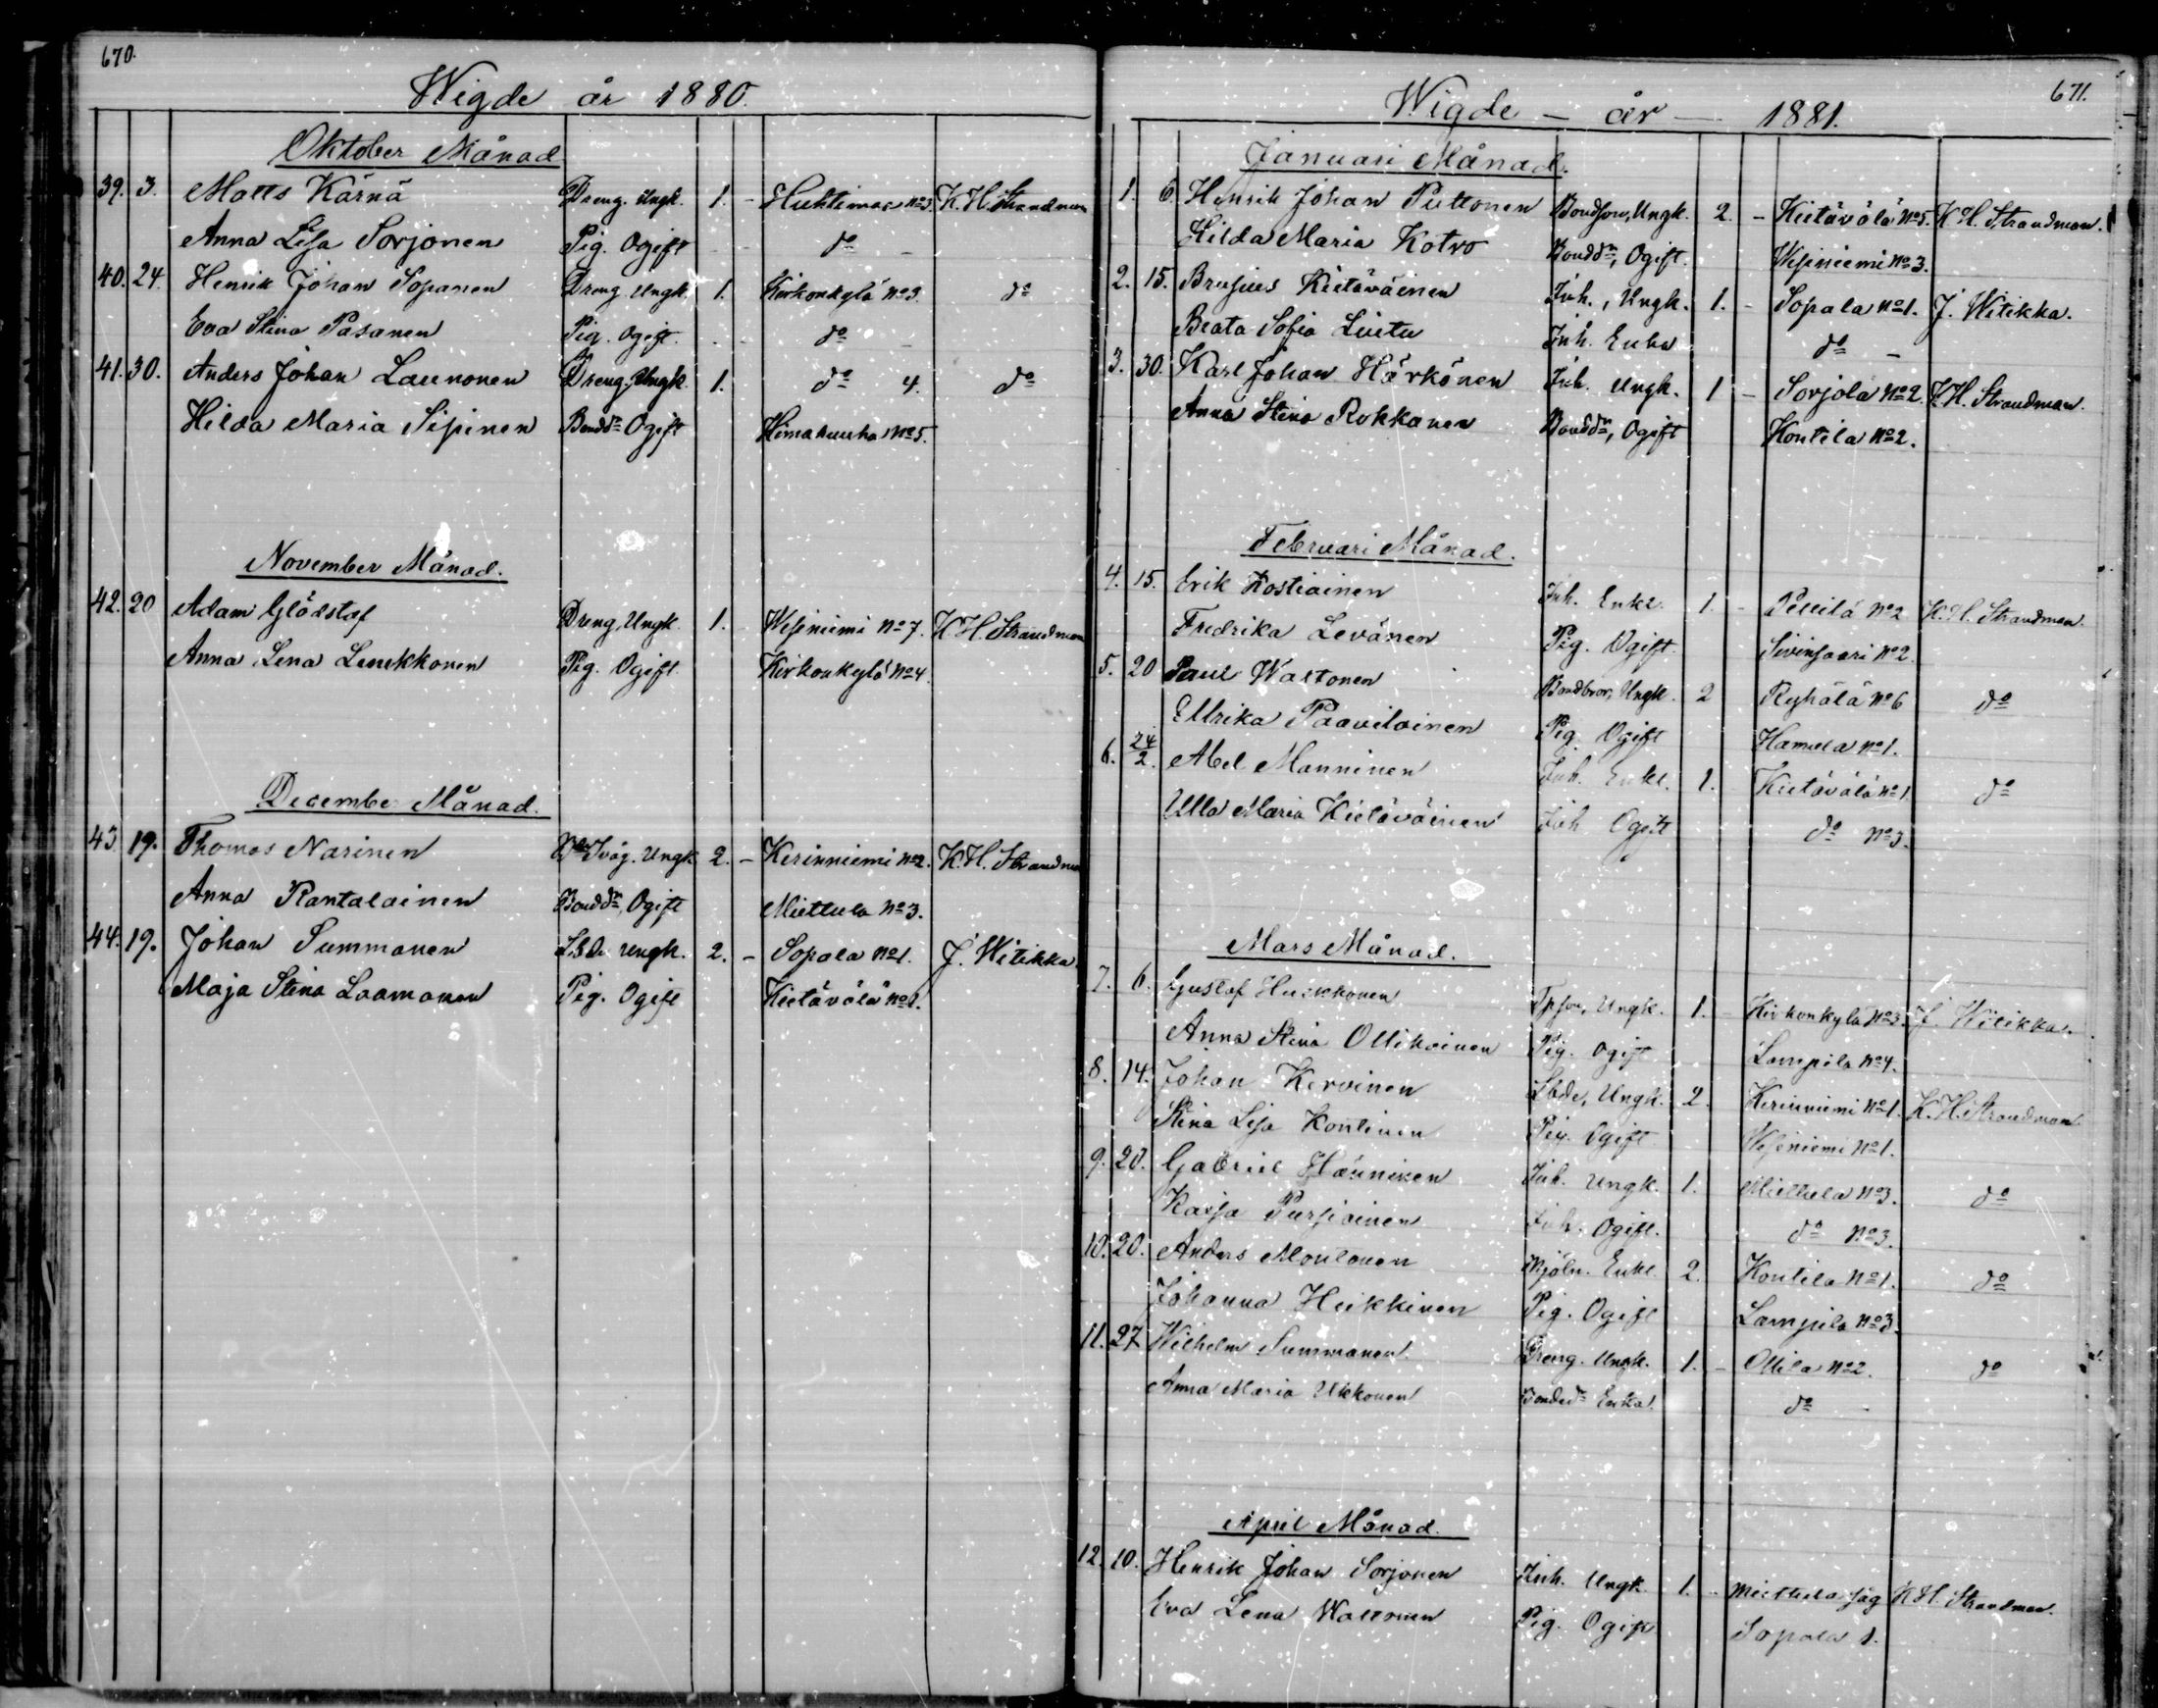 670.
Wigde år 1880.
Oktober Månad
39. 3. Matts Kärnä Dreng. Ungk. 1. - Huhtimaa No 3. K. H. Strandman
Anna Lisa Sorjonen Pig. Ogift do -
40. 24. Henrik Johan Sopanen Dreng Ungk. 1. Kirkonkylä No 3. do
Eva Stina Pasanen Pig. Ogift. do -
41. 30. Anders Johan Launonen Dreng. Ungk. 1. do 4. do
Hilda Maria Sipinen Bonddr Ogift Himahuuha No 5.
November Månad.
42. 20 Adam Glödstaf Dreng, Ungk. 1. Wesiniemi No 7. K. H. Strandman
Anna Lena Leukkonen Pig. Ogift. Kirkonkylä No 4.
December Månad.
43. 19. Thomas Narinen Svåg. Ungk 2. - Kerinniemi No 2. K. H. Strandman
Anna Rantalainen Bonddr, Ogift Miettula No 3.
44. 19. Johan Summanen Ungk. 2. - Sopala No 1. J. Witikka.
Maja Stina Laamanen Pig. Ogift Kietävälä No 1.
671.
Wigde - år - 1881.
Januari Månad.
1. 6. Henrik Johan Puttonen Bondson, Ungk. 2. - Kietävälä No 5. K. H. Strandman.
Hilda Maria Kotro Bonddr, Ogift. Wesiniemi No 3.
2. 15. Brusius Kietäväinen Inh., Ungk. 1. - Sopala No 1. J. Witikka.
Beata Sofia Liutu Inh. Enka do -
3. 30. Karl Johan Härkönen Inh. Ungk. 1 - Sorjola No 2. K. H. Strandman.
Anna Stina Rokkanen Bonddr, Ogift Kontila No 2.
Februari Månad.
4. 15. Erik Kostiainen Inh. Enkl. 1. - Pellilä No 2 K. H. Strandman.
Fredrika Levänen Pig. Ogift. Sivinsaari No 2.
5. 20 Paul Wartonen Bondbror, Ungk. 2 Ryhälä No 6 do
Ulrika Paavilainen Pig. Ogift Hamula No 1.
6. 24/2. Abel Manninen Inh. Enkl. 1. Kietävälä No 1 do
Ulla Maria Kietäväinen Inh Ogift do No 3.
Mars Månad.
7. 6. Gustaf Huikkonen Ungk. 1. - Kirkonkylä No 3. J. Witikka.
Anna Stina Ollikainen Pig. Ogift Lampila No 4.
8. 14. Johan Kervinen Ungk. 2. Kerinniemi No 1. K. H. Strandman
Stina Lisa Kontinen Pig. Ogift Wesiniemi No 1.
9. 20. Gabriel Hänninen Inh. Ungk. 1. Miettula No 3. do
Kaisa Pursiainen Inh. Ogift. do No 3.
10. 20. Anders Moilanen Mjöln. Enkl. 2. Kontila No 1. do
Johanna Heikkinen Pig. Ogift Lampila No 3.
11. 27 Wilhelm Summanen Dreng. Ungk. 1. - Ollila No 2. do
Anna Maria Ukkonen Bonddr Enka. do -
April Månad.
12. 10. Henrik Johan Sorjonen Inh. Ungk. 1. - Miettula såg K. H. Strandman.
Eva Lena Pig. Ogift Sopala 1.